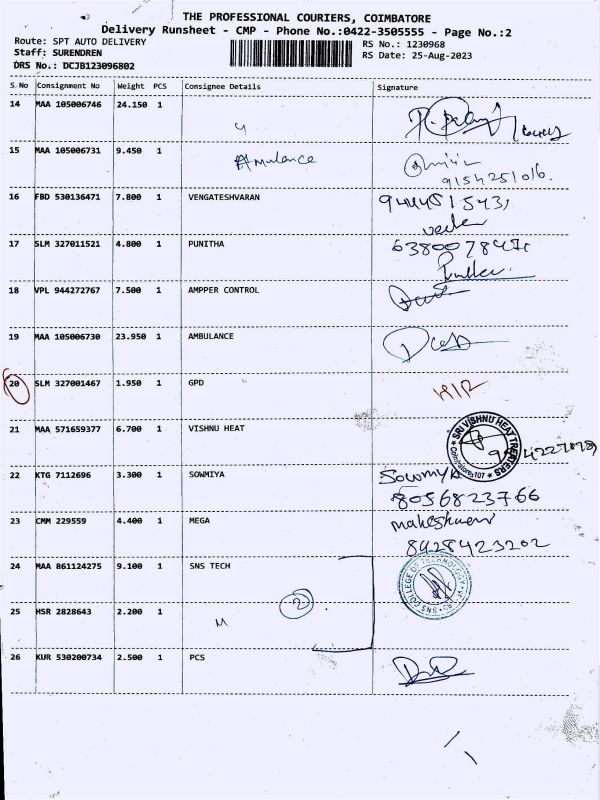 THE PROFESSIONAL COURIERS, COIMBATORE
Delivery Runsheet - CMP - Phone No.:0422-3505555 - Page No.:2
Route: SPT AUTO DELIVERY
RS No.: 1230968
Staff: SURENDREN
RS Date: 25-Aug-2023
DRS No.: DCJB123096802
S.No Consignment No Weight PCS Consignee Details Signature
14 MAA 105006746 24.150 1
15 MAA 105006731 9.450 1 Amulance
9154251016.
16 FBD 530136471 7.800 1 VENGATESHVARAN
17 SLM 327011521 4.800 1 PUNITHA
18 VPL 944272767 7.500 1 AMPPER CONTROL
19 MAA 105006730 23.950 1 AMBULANCE
20 SLM 327001467 1.950 1 GPD
21 MAA 571659377 6.700 1 VISHNU HEAT SRI VISHNU HEAT TREATERS
22 KTG 7112696 3.300 1 SOWMIYA Sowmya
8056823766
23 CMM 229559 4.400 1 MEGA maheshwari
8428423202
24 MAA 861124275 9.100 1 SNS TECH SNS COLLEGE OF TECHNOLOGY
2
25 HSR 2828643 2.200 1
26 KUR 530200734 2.500 1 PCS